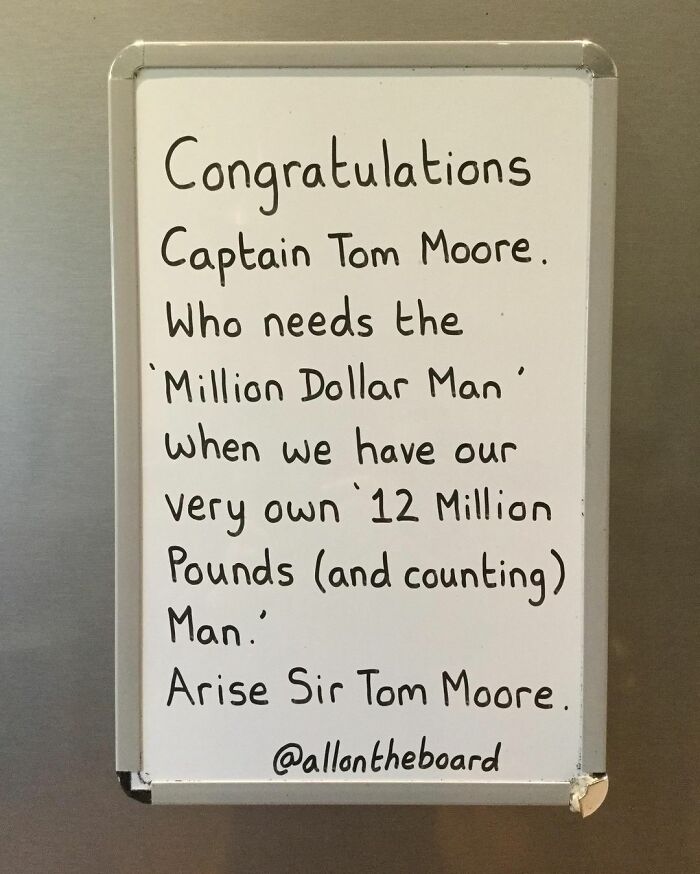 Congratulations
Captain Tom Moore.
Who needs the
`Million Dollar Man'
when we have our
very own `12 Million
Pounds (and counting)
Man.'
Arise Sir Tom Moore.
@allontheboard